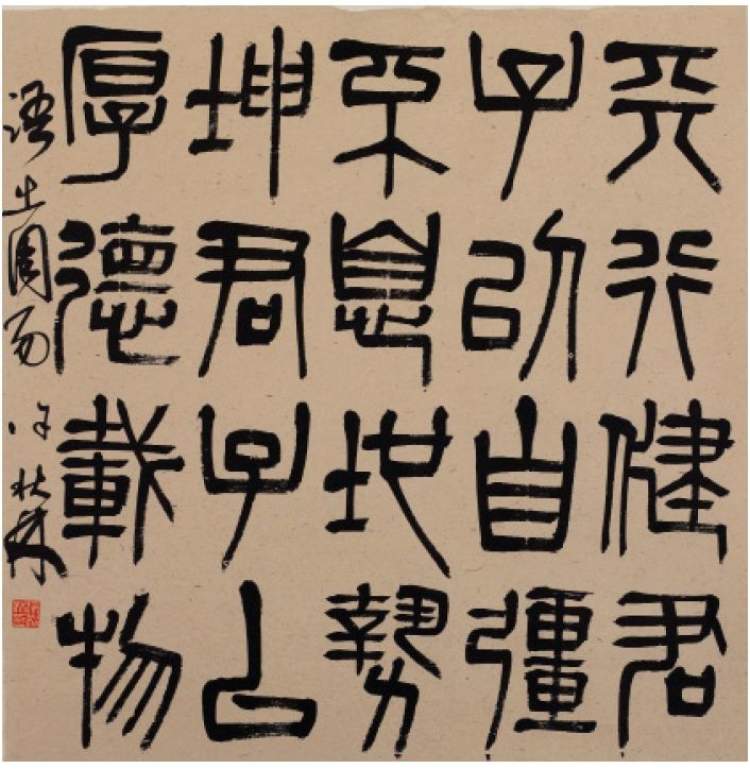 天行健君
子以自彊
不息地勢
坤君子以
厚德載物
語出周易